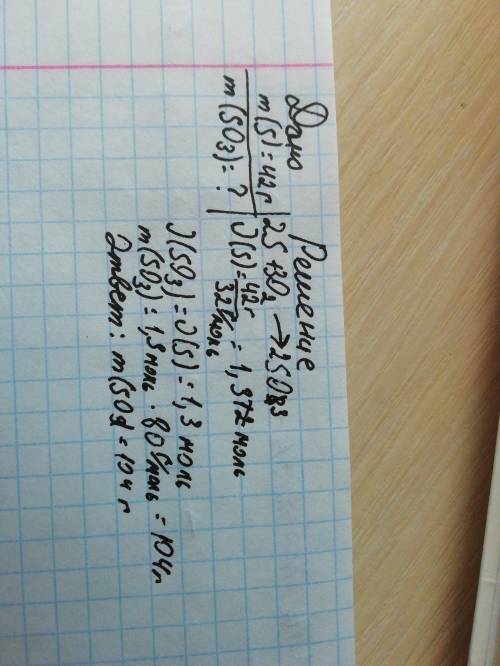 Дано
m(S) = 42г
m(SO₃) = ?
Решение
2S + 3O₂ → 2SO₃
ν(S) = 42г / 32г/моль = 1,312 моль
ν(SO₃) = ν(S) = 1,3 моль
m(SO₃) = 1,3 моль · 80г/моль = 104г
Ответ: m(SO₃) = 104г